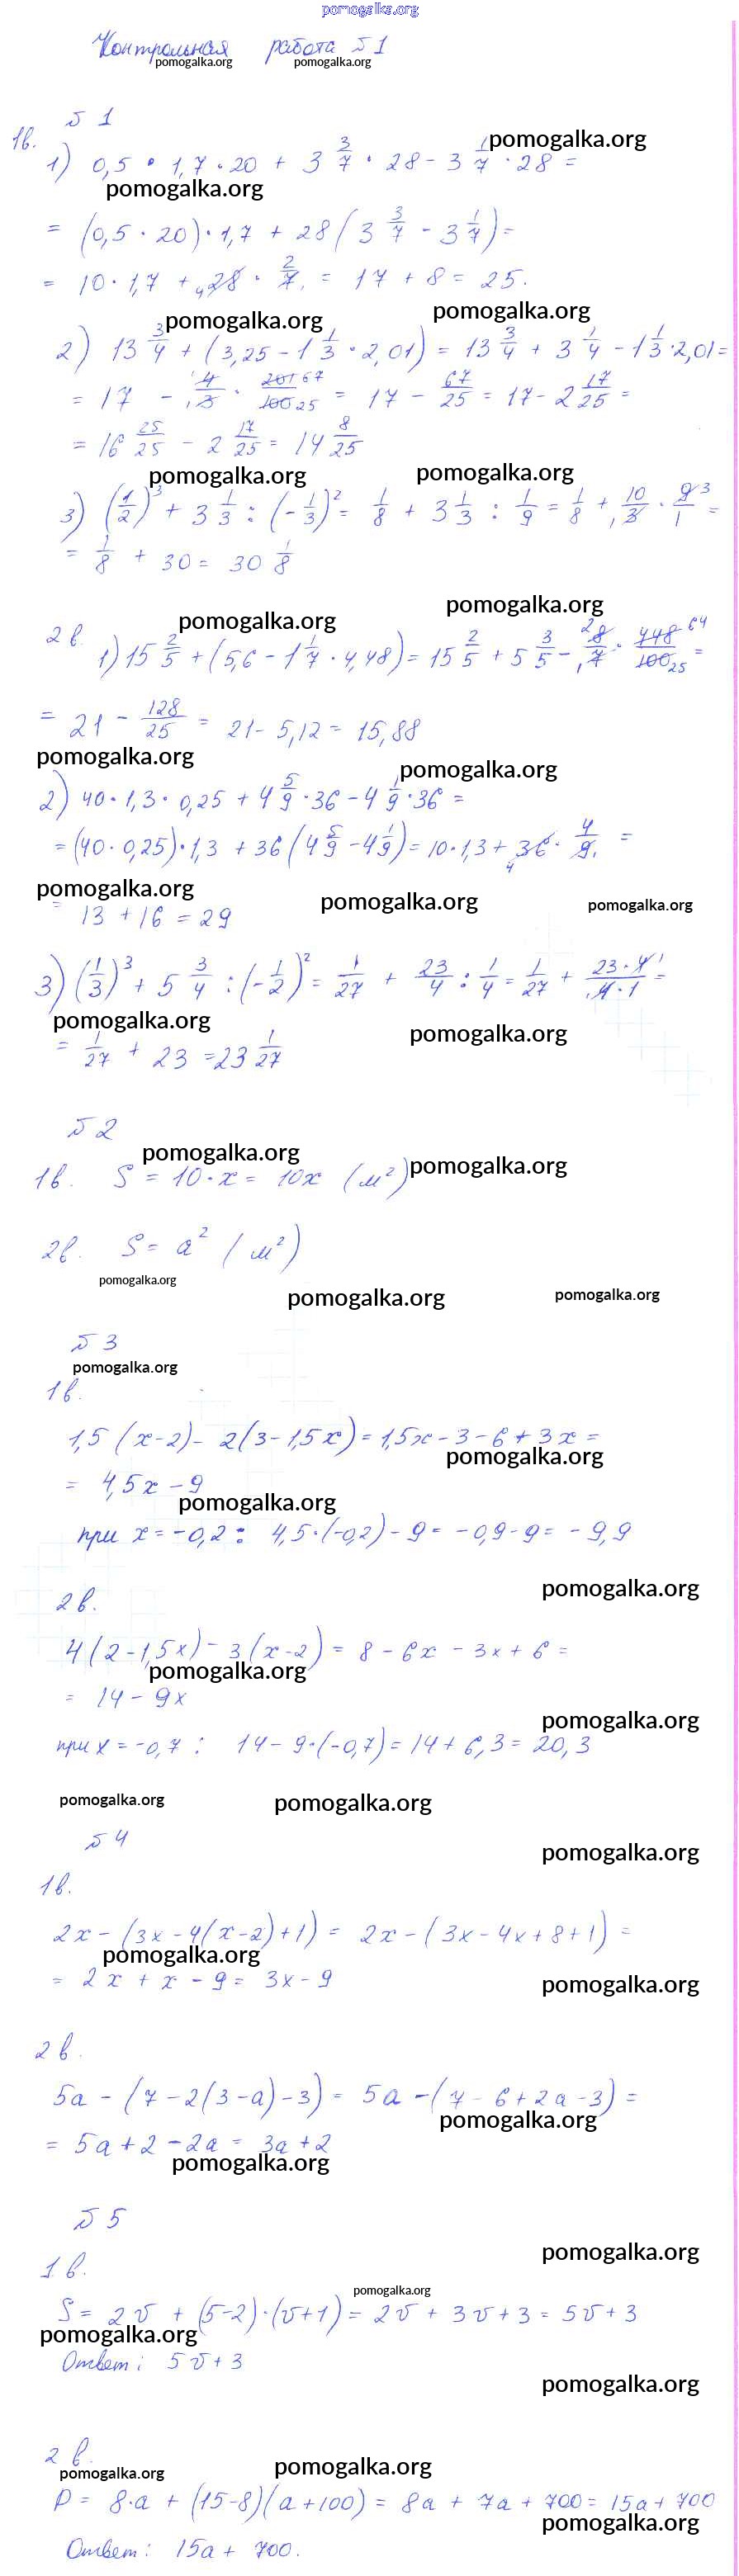 pomogalka.org
Контрольная работа №1
pomogalka.org pomogalka.org
№ 1
1в.
1) 0,5 · 1,7 · 20 + 3 3/7 · 28 - 3 1/7 · 28 =
pomogalka.org
pomogalka.org
= (0,5 · 20) · 1,7 + 28 (3 3/7 - 3 1/7) =
= 10 · 1,7 + 28 · 2/7 = 17 + 8 = 25.
pomogalka.org pomogalka.org
2) 13 3/4 + (3,25 - 1 1/3 · 2,01) = 13 3/4 + 3 1/4 - 1 1/3 · 2,01 =
= 17 - 4/3 · 201/100 = 17 - 67/25 = 17 - 2 17/25 =
= 16 25/25 - 2 17/25 = 14 8/25
pomogalka.org pomogalka.org
3) (1/2)³ + 3 1/3 : (-1/3)² = 1/8 + 3 1/3 : 1/9 = 1/8 + 10/3 · 9/1 =
= 1/8 + 30 = 30 1/8
pomogalka.org pomogalka.org
2в.
1) 15 2/5 + (5,6 - 1 1/7 · 4,48) = 15 2/5 + 5 3/5 - 8/7 · 448/100 =
= 21 - 128/25 = 21 - 5,12 = 15,88
pomogalka.org pomogalka.org
2) 40 · 1,3 · 0,25 + 4 5/9 · 36 - 4 1/9 · 36 =
= (40 · 0,25) · 1,3 + 36 (4 5/9 - 4 1/9) = 10 · 1,3 + 36 · 4/9 =
pomogalka.org pomogalka.org pomogalka.org
= 13 + 16 = 29
3) (1/3)³ + 5 3/4 : (-1/2)² = 1/27 + 23/4 : 1/4 = 1/27 + 23·4/4·1 =
pomogalka.org pomogalka.org
= 1/27 + 23 = 23 1/27
№ 2
pomogalka.org pomogalka.org
1в. S = 10 · x = 10x (м²)
2в. S = a² (м²)
pomogalka.org
pomogalka.org pomogalka.org
№ 3
pomogalka.org
1в.
1,5 (x-2) - 2(3-1,5x) = 1,5x - 3 - 6 + 3x =
pomogalka.org
= 4,5x - 9
pomogalka.org
при x = -0,2 : 4,5 · (-0,2) - 9 = -0,9 - 9 = -9,9
pomogalka.org
2в.
4(2-1,5x) - 3(x-2) = 8 - 6x - 3x + 6 =
pomogalka.org
= 14 - 9x
pomogalka.org
при x = -0,7 : 14 - 9 · (-0,7) = 14 + 6,3 = 20,3
pomogalka.org pomogalka.org
№ 4
pomogalka.org
1в.
2x - (3x - 4(x-2) + 1) = 2x - (3x - 4x + 8 + 1) =
pomogalka.org
= 2x + x - 9 = 3x - 9
pomogalka.org
2в.
5a - (7 - 2(3-a) - 3) = 5a - (7 - 6 + 2a - 3) =
pomogalka.org
= 5a + 2 - 2a = 3a + 2
pomogalka.org
№ 5
pomogalka.org
1в.
pomogalka.org
S = 2v + (5-2) · (v+1) = 2v + 3v + 3 = 5v + 3
pomogalka.org
Ответ: 5v + 3
pomogalka.org
2в.
pomogalka.org pomogalka.org
P = 8 · a + (15-8)(a+100) = 8a + 7a + 700 = 15a + 700
pomogalka.org
Ответ: 15a + 700.